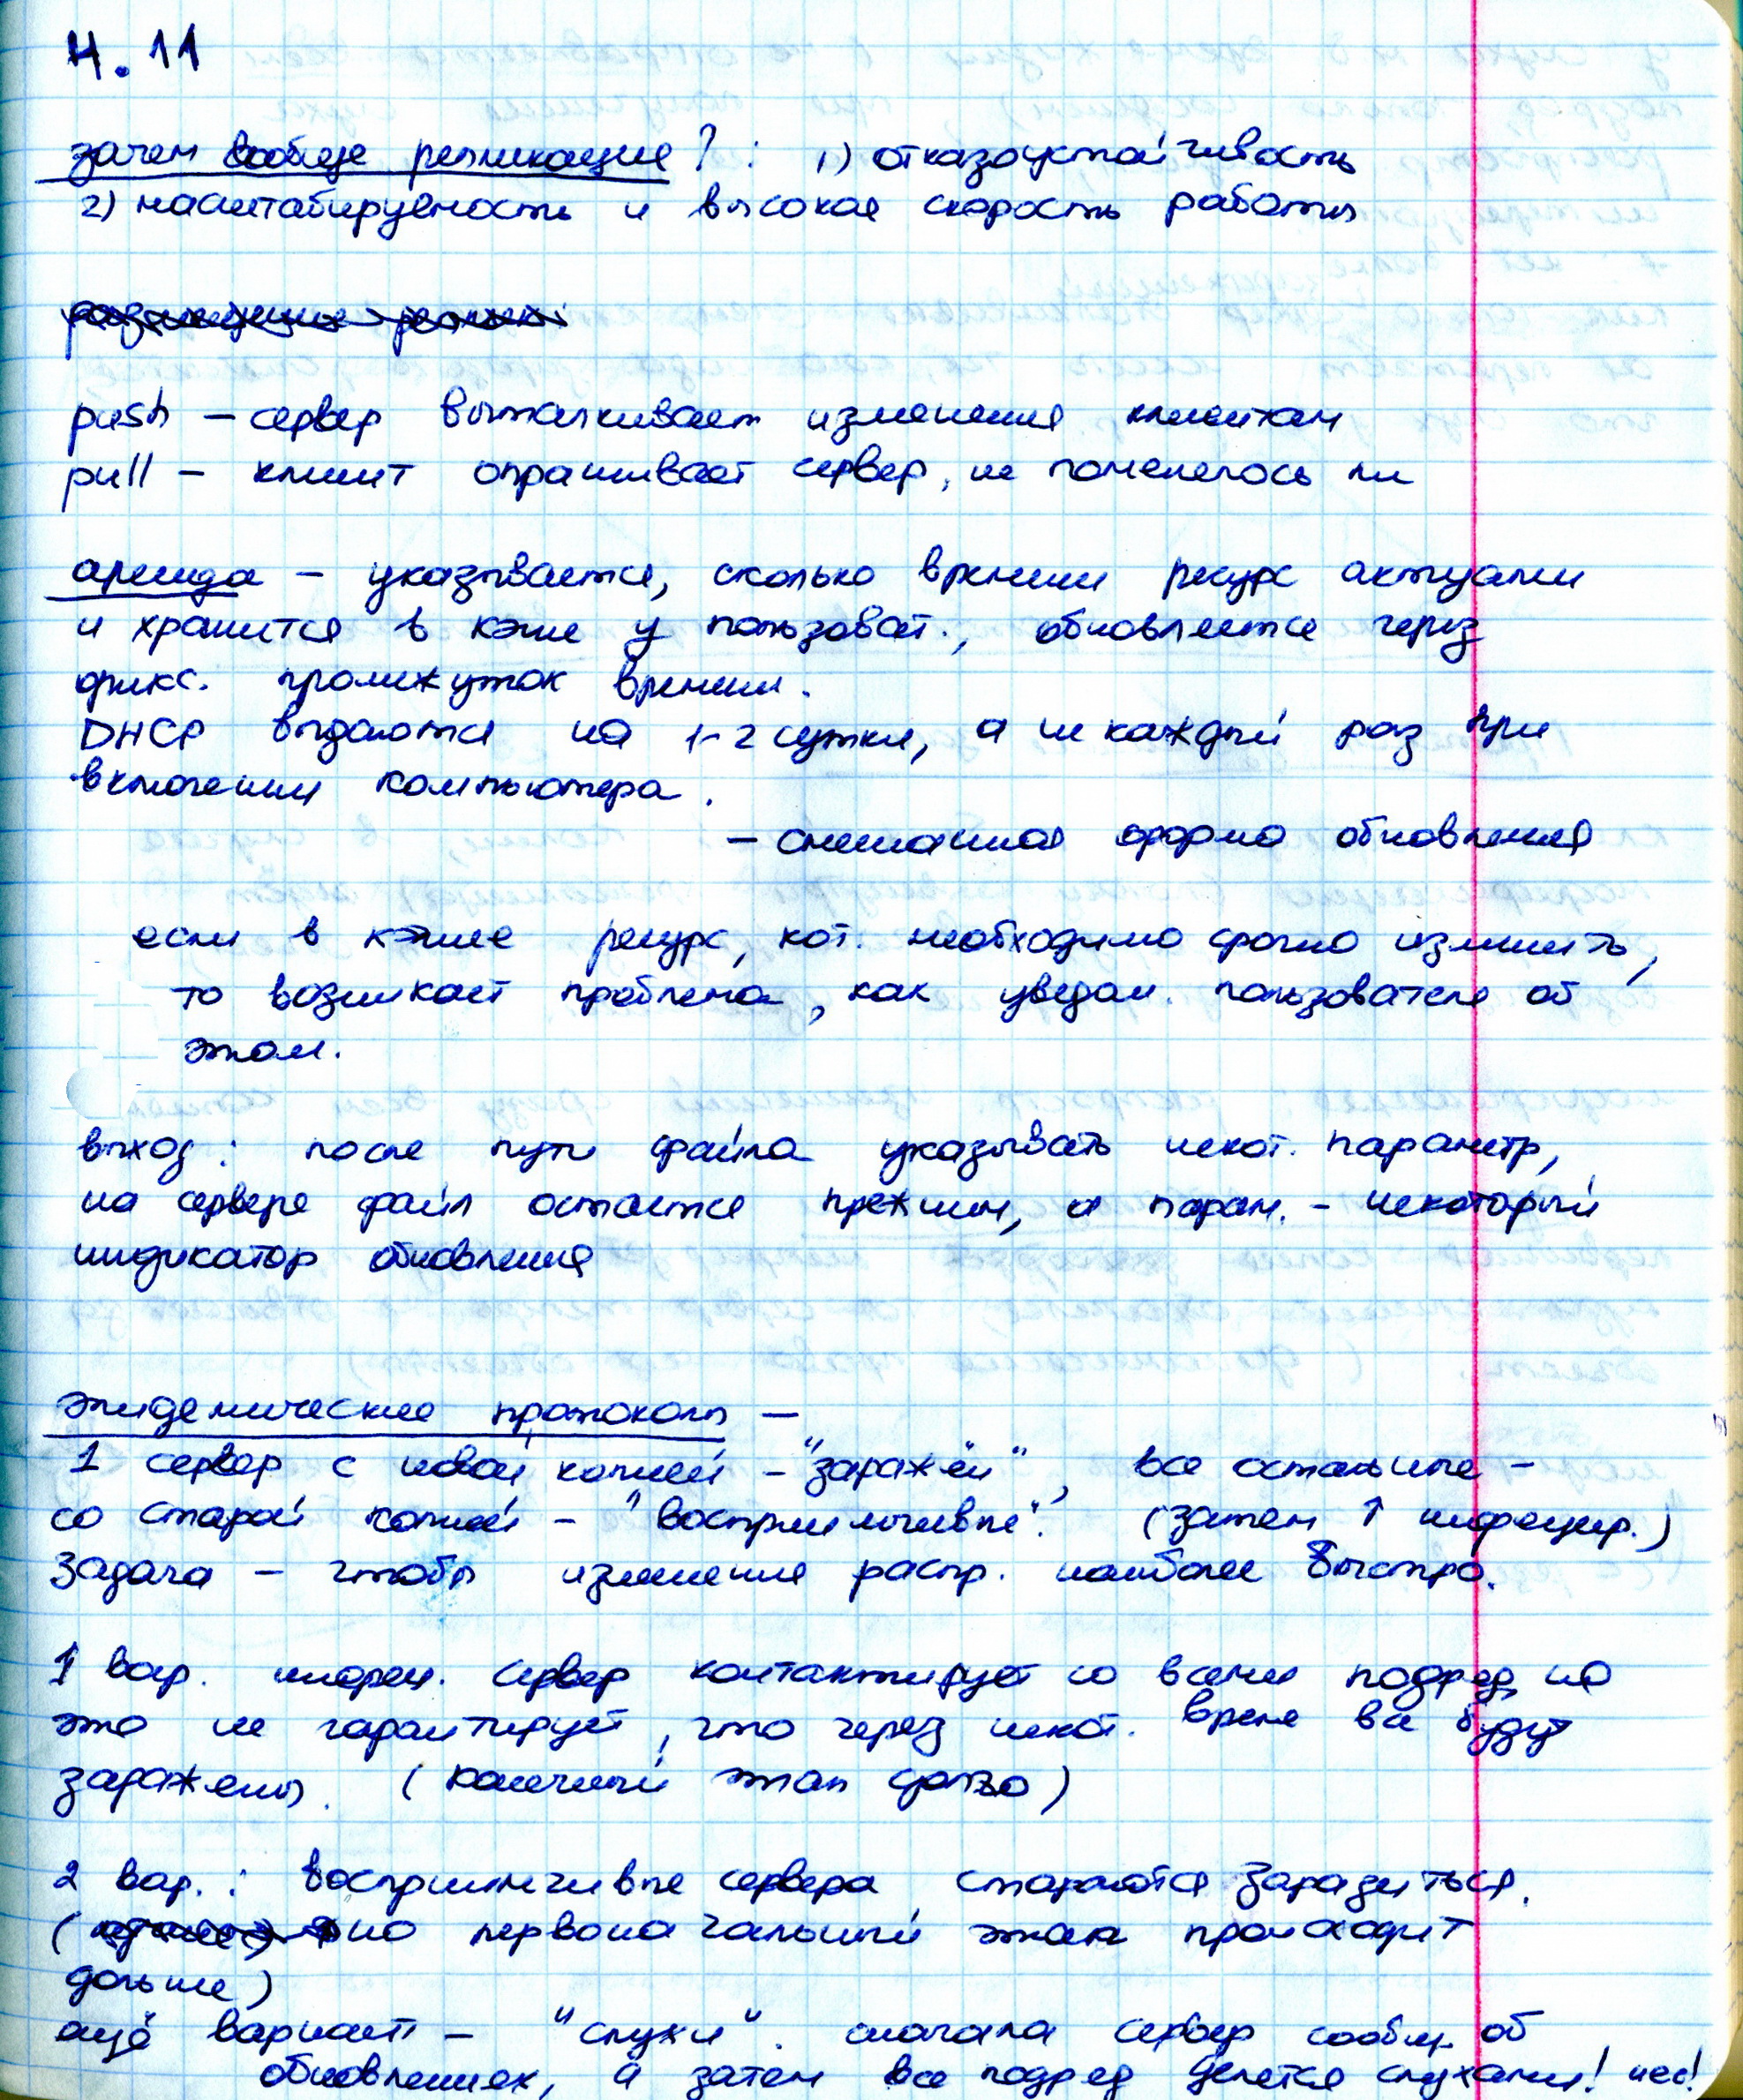 4. 11
зачем вообще репликация? : 1) отказоустойчивость
2) масштабируемость и высокая скорость работы
push – сервер выталкивает изменения клиентам
pull – клиент опрашивает сервер, не поменялось ли
аренда – указывается, сколько времени ресурс актуален
и хранится в кэше у пользоват., обновляется через
фикс. промежуток времени.
DHCP выдаются на 1-2 сутки, а не каждый раз при
включении компьютера.
– смешанная форма обновления
если в кэше ресурс, кот. необходимо срочно изменить,
то возникает проблема, как уведом. пользователя об
этом.
выход: после пути файла указывать некот. параметр,
на сервере файл остается прежним, а парам. – некоторый
индикатор обновления
эпидемические протоколы –
1 сервер с новой копией – "заражён", все остальные –
со старой копией – "восприимчивые". (затем ↑ инфецир.)
Задача – чтобы изменения распр. наиболее быстро.
1 вар. сервер контактирует со всеми подряд, но
это не гарантирует, что через некот. время все будут
заражены. (конечный этап долго)
2 вар.: восприимчивые сервера стараются заразиться.
( но первоначальный этап происходит
дольше)
ещё вариант – "слухи". сначала сервер сообщ. об
обновлениях, а затем все подряд делятся слухами!